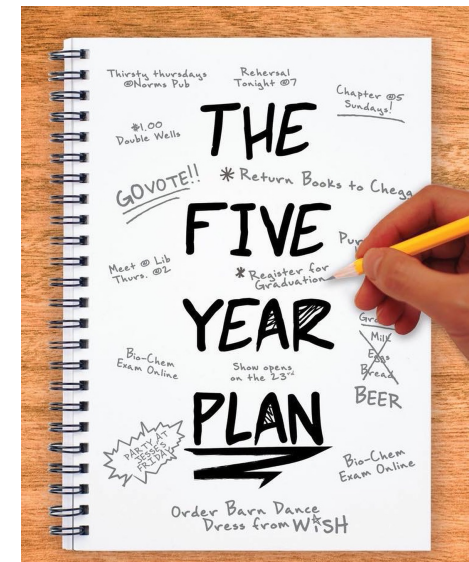 Thirsty thursdays
@Norms Pub
Rehersal
Tonight @7
Chapter @5
Sundays!
$1.00
Double Wells
THE
GOVOTE!!
* Return Books to Chegg
FIVE
Meet @ Lib
Thurs. @2
* Register for
Graduation
YEAR
Milk
Eggs
Bread
BEER
Bio-Chem
Exam Online
Show opens
on the 23rd
PLAN
PARTY AT
JESSES
FRIDAY
Bio-Chem
Exam Online
Order Barn Dance
Dress from WiSH